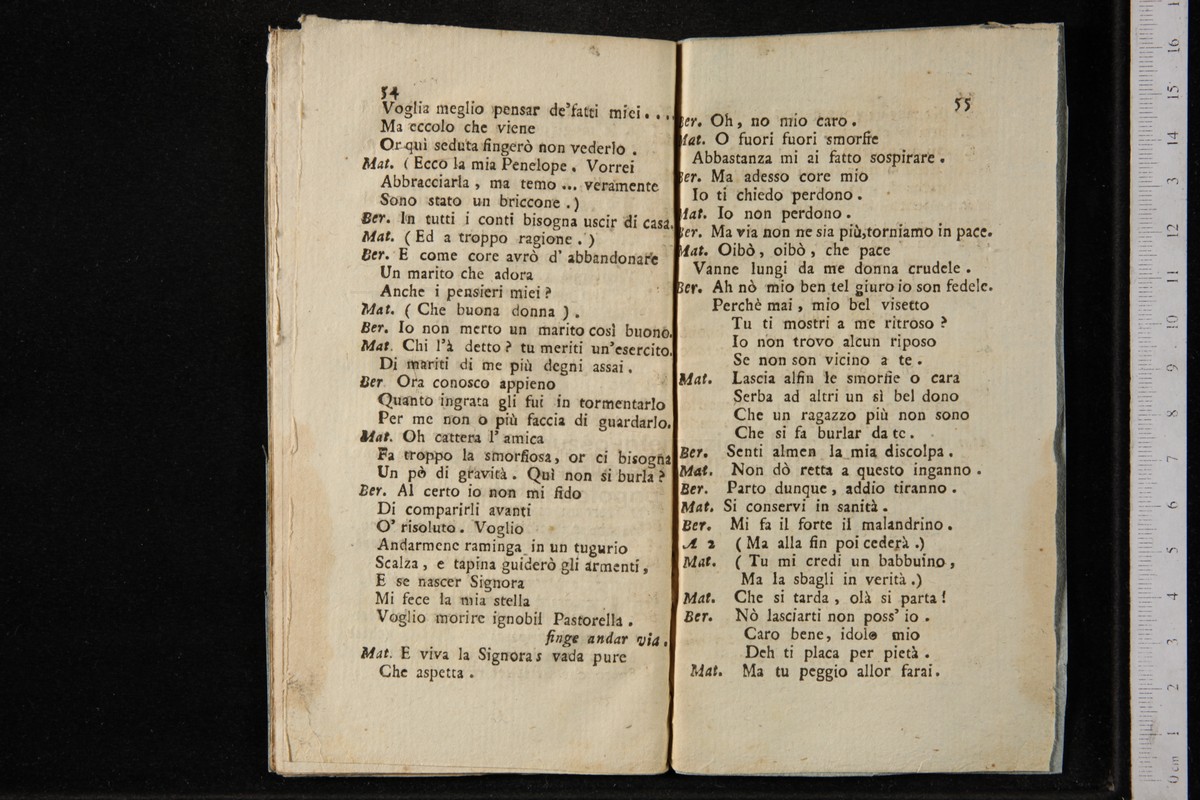 54
Voglia meglio pensar de'fatti miei....
Ma eccolo che viene
Or quì seduta fingerò non vederlo .
Mat. ( Ecco la mia Penelope . Vorrei
Abbracciarla , ma temo ... veramente
Sono stato un briccone . )
Ber. In tutti i conti bisogna uscir di casa.
Mat. ( Ed a troppo ragione . )
Ber. E come core avrò d' abbandonare
Un marito che adora
Anche i pensieri miei ?
Mat. ( Che buona donna ) .
Ber. Io non merto un marito così buono.
Mat. Chi l'à detto ? tu meriti un'esercito.
Di mariti di me più degni assai .
Ber Ora conosco appieno
Quanto ingrata gli fui in tormentarlo
Per me non o più faccia di guardarlo.
Mat. Oh cattera l' amica
Fa troppo la smorfiosa, or ci bisogna
Un pò di gravità . Quì non si burla ?
Ber. Al certo io non mi fido
Di comparirli avanti
O' risoluto . Voglio
Andarmene raminga in un tugurio
Scalza , e tapina guiderò gli armenti ,
E se nascer Signora
Mi fece la mia stella
Voglio morire ignobil Pastorella .
finge andar via.
Mat. E viva la Signora s vada pure
Che aspetta .
55
Ber. Oh , no mio caro .
Mat. O fuori fuori smorfie
Abbastanza mi ai fatto sospirare .
Ber. Ma adesso core mio
Io ti chiedo perdono .
Mat. Io non perdono .
Ber. Ma via non ne sia più,torniamo in pace.
Mat. Oibò , oibò , che pace
Vanne lungi da me donna crudele .
Ber. Ah nò mio ben tel giuro io son fedele.
Perchè mai , mio bel visetto
Tu ti mostri a me ritroso ?
Io non trovo alcun riposo
Se non son vicino a te .
Mat. Lascia alfin le smorfie o cara
Serba ad altri un sì bel dono
Che un ragazzo più non sono
Che si fa burlar da te .
Ber. Senti almen la mia discolpa .
Mat. Non dò retta a questo inganno .
Ber. Parto dunque , addio tiranno .
Mat. Si conservi in sanità .
Ber. Mi fa il forte il malandrino .
A 2 ( Ma alla fin poi cederà .)
Mat. ( Tu mi credi un babbuino ,
Ma la sbagli in verità .)
Mat. Che si tarda , olà si parta !
Ber. Nò lasciarti non poss' io .
Caro bene, idolo mio
Deh ti placa per pietà .
Mat. Ma tu peggio allor farai.
0 cm 1 2 3 4 5 6 7 8 9 10 11 12 13 14 15 16